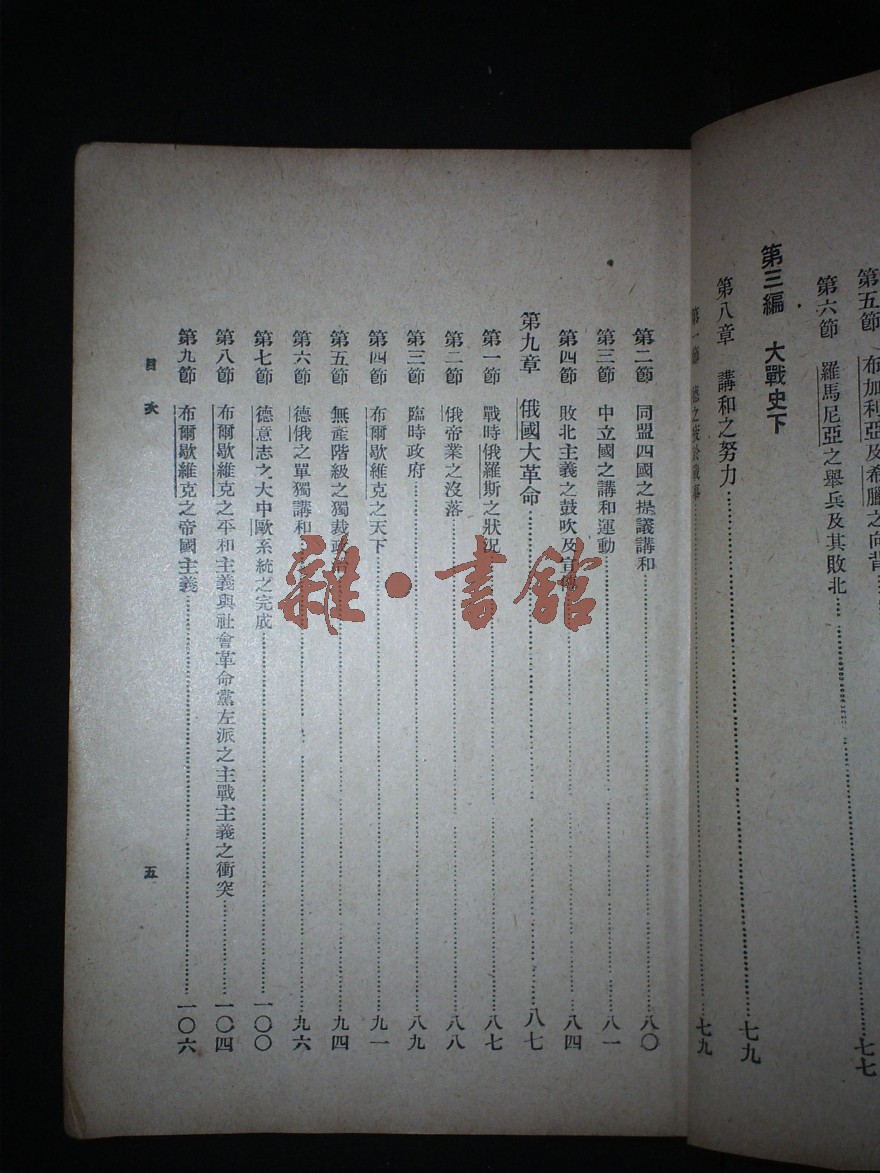 第五節 布加利亞及希臘之向背……七七
第六節 羅馬尼亞之舉兵及其敗北……
第三編 大戰史下
第八章 講和之努力……七九
第一節……七九
第二節 同盟四國之提議講和……八〇
第三節 中立國之講和運動……八一
第四節 敗北主義之鼓吹及宣傳……八四
第九章 俄國大革命……八七
第一節 戰時俄羅斯之狀況……八七
第二節 俄帝業之沒落……八八
第三節 臨時政府……八九
第四節 布爾歇維克之天下……九一
第五節 無產階級之獨裁政治……九四
第六節 德俄之單獨講和……九六
第七節 德意志之大中歐系統之完成……一〇〇
第八節 布爾歇維克之平和主義與社會革命黨左派之主戰主義之衝突……一〇四
第九節 布爾歇維克之帝國主義……一〇六
目次 五
雜·書館